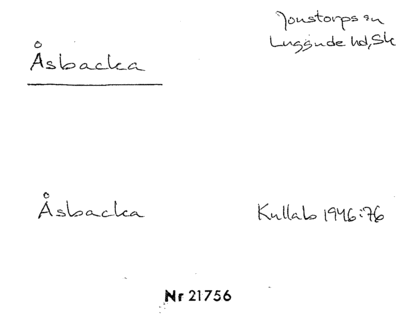 Åsbacka
Jonstorps sn
Luggude hd, Sk
Åsbacka
Kullab 1946:76
Nr 21756